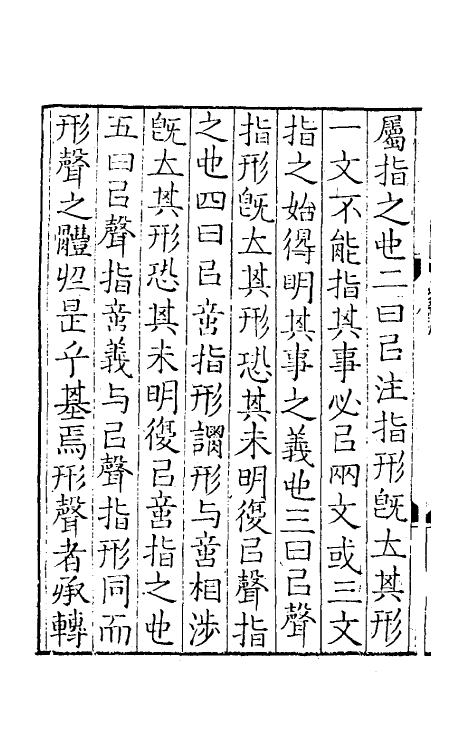 屬指之也二曰㠯注指形旣大其形
一文不能指其事必㠯兩文或三文
指之始得明其事之義也三曰㠯聲
指形旣大其形恐其未明復㠯聲指
之也四曰㠯意指形謂形与意相涉
旣大其形恐其未明復㠯意指之也
五曰㠯聲指意義与㠯聲指形同而
形聲之體㫄是乎基焉形聲者承轉